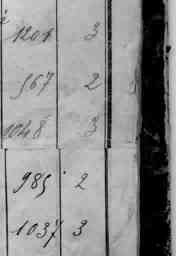 1201 3
567 2
1048 3
985 2
1037 3